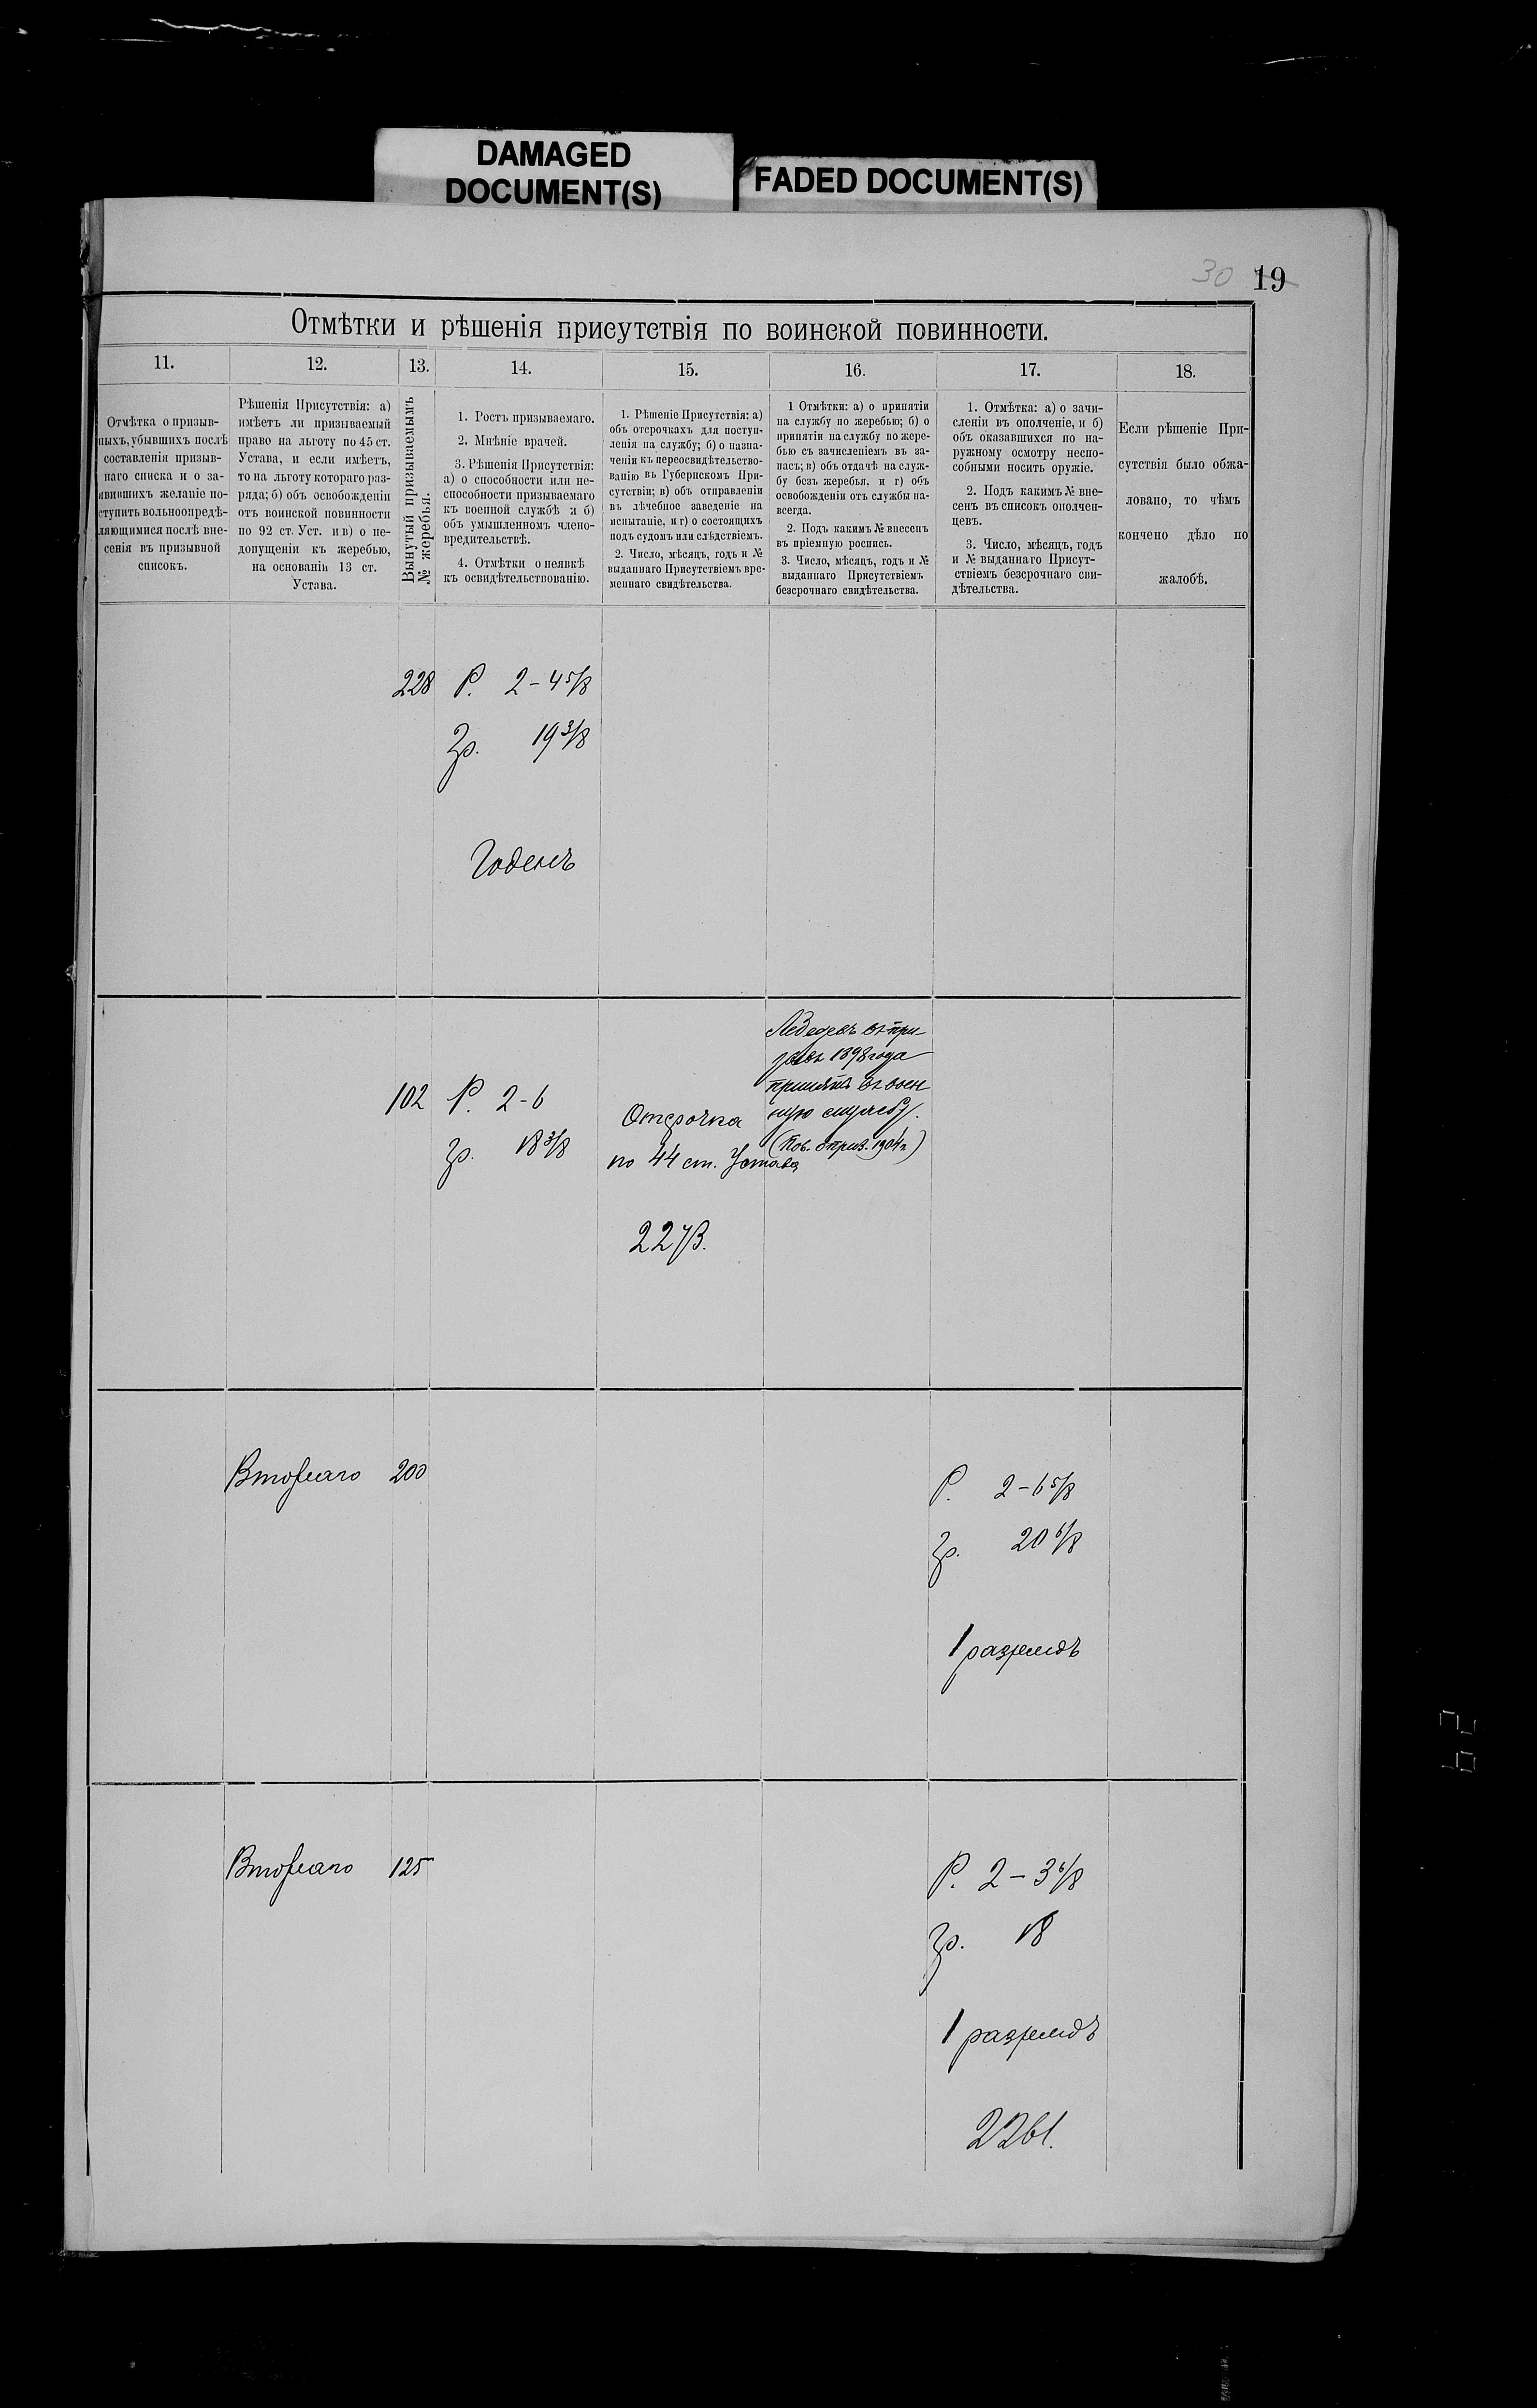 DAMAGED
DOCUMENT(S)
FADED DOCUMENT(S)
30 19
Отмѣтки и рѣшенія присутствія по воинской повинности.
11.
12.
13.
14.
15.
16.
17.
18.
Отмѣтка о призыв-
ныхъ, убывшихъ послѣ
составленія призыв-
наго списка и о за-
явившихъ желаніе по-
ступить вольноопредѣ-
ляющимися послѣ вне-
сенія въ призывной
списокъ.
Рѣшенія Присутствія: а)
имѣетъ ли призываемый
право на льготу по 45 ст.
Устава, и если имѣетъ,
то на льготу котораго раз-
ряда; б) объ освобожденіи
отъ воинской повинности
по 92 ст. Уст. и в) о не-
допущеніи къ жеребью,
на основаніи 13 ст.
Устава.
Вынутый призываемымъ
№ жеребья.
1. Ростъ призываемаго.
2. Мнѣніе врачей.
3. Рѣшенія Присутствія:
а) о способности или не-
способности призываемаго
къ военной службѣ и б)
объ умышленномъ члено-
вредительствѣ.
4. Отмѣтки о неявкѣ
къ освидѣтельствованію.
1. Рѣшеніе Присутствія: а)
объ отсрочкахъ для поступ-
ленія на службу; б) о назна-
ченіи къ переосвидѣтельство-
ванію въ Губернскомъ При-
сутствіи; в) объ отправленіи
въ лѣчебное заведеніе на
испытаніе, и г) о состоящихъ
подъ судомъ или слѣдствіемъ.
2. Число, мѣсяцъ, годъ и №
выданнаго Присутствіемъ вре-
меннаго свидѣтельства.
1 Отмѣтки: а) о принятіи
на службу по жеребью; б) о
принятіи на службу по жере-
бью съ зачисленіемъ въ за-
пасъ; в) объ отдачѣ на служ-
бу безъ жеребья, и г) объ
освобожденіи отъ службы на-
всегда.
2. Подъ какимъ № внесенъ
въ пріемную роспись.
3. Число, мѣсяцъ, годъ и №
выданнаго Присутствіемъ
безсрочнаго свидѣтельства.
1. Отмѣтка: а) о зачи-
сленіи въ ополченіе, и б)
объ оказавшихся по на-
ружному осмотру неспо-
собными носить оружіе.
2. Подъ какимъ № вне-
сенъ въ списокъ ополчен-
цевъ.
3. Число, мѣсяцъ, годъ
и № выданнаго Присут-
ствіемъ безсрочнаго сви-
дѣтельства.
Если рѣшеніе При-
сутствія было обжа-
ловано, то чѣмъ
кончено дѣло по
жалобѣ.
228 Р. 2-4 5/8
Гр. 19 3/8
Годенъ
102 Р. 2-6
гр. 18 3/8
Отсрочка
по 44 ст. Устава
2273.
въ при-
зывъ 1898 года
принятъ въ воен
ную службу.
Втораго 200
Р. 2-6 5/8
гр. 20 6/8
1 разрядъ
Втораго 125
Р. 2-3 6/8
гр. 18
1 разрядъ
2261.